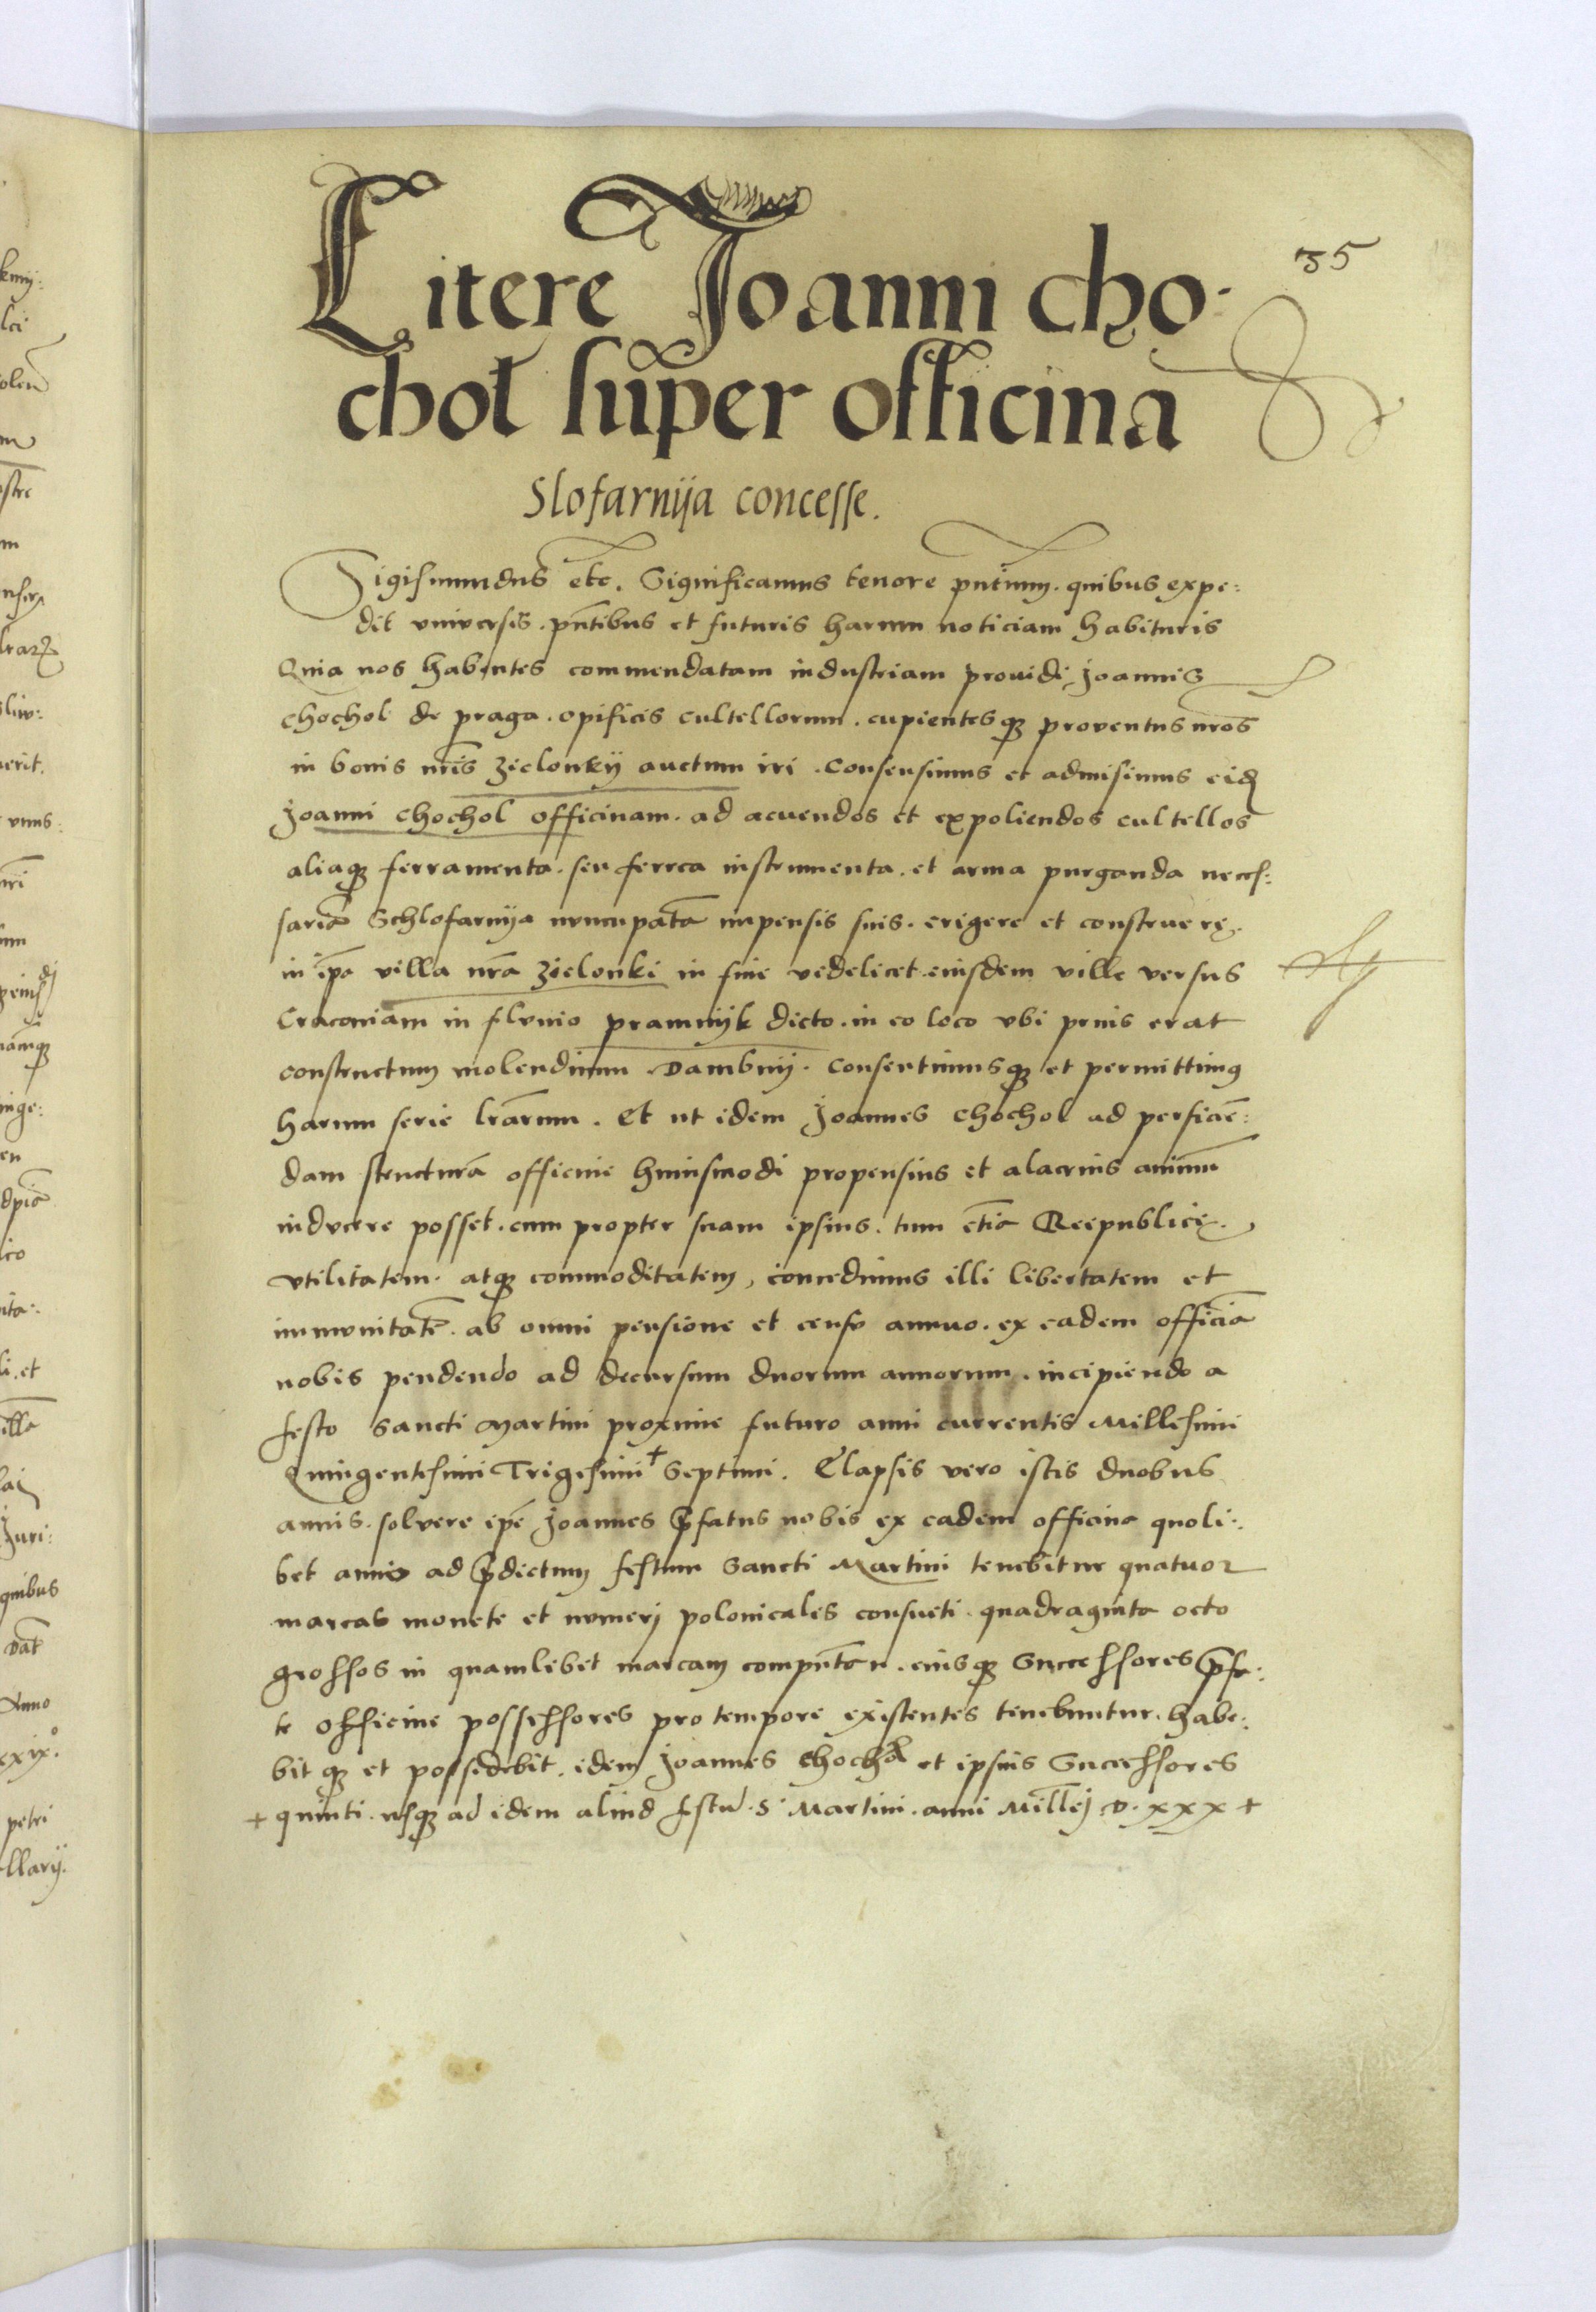 35
Litere Joanni cho-
chol super officina
Slofarnija concesse.
Sigismundus etc. Significamus tenore pntium. quibus expe:
dit vniversis. pntibus et futuris harum noticiam habituris
Quia nos habentes commendatam industriam prouidi Joannis
chochol de praga. opificis cultellorum. cupientesqꝫ proventus nros
in bonis nris Zielonkÿ auctum iri. Consensimus et admisimus eidem
Joanni chochol officinam. ad acuendos et expoliendos cultellos
aliaqꝫ ferramenta. seu ferrea instrumenta. et arma purganda neces:
saria Schlofarnija nuncupata impensis suis. erigere et construere.
in ipa villa nra Zielonki in fine videlicet eiusdem ville versus
Cracoviam in fluvio pramnijk dicto. in eo loco vbi prius erat
constructum molendinum Dambnij. Consentimusqꝫ et permittimus
harum serie lrarum. Et ut idem Joannes Chochol ad perficien:
dam structura officine huiusmodi propensius et alacrius animu
inducere posset. cum propter suam ipsius. tum etia Reipublice.
vtilitatem. atqꝫ commoditatem, concedimus illi libertatem et
immunitate. ab omni pensione et censu annuo. ex eadem officia
nobis pendendo ad decursum duorum annorum. incipiendo a
festo Sancti Martini proxime futuro anni currentis Millesimi
Quingentesimi Trigesimi + Septimi. Elapsis vero istis duobus
annis. solvere ipe Joannes pfatus nobis ex eadem officina quoli:
bet anno ad pdictum festum Sancti Martini tenebitur quatuor
marcas monete et numeri polonicales consueti. quadraginta octo
grossos in quamlibet marcam computan. eiusqꝫ Successores pfa:
te officine possessores pro tempore existentes tenebuntur. habe:
bitqꝫ et possidebit. idem Joannes Chochol et ipsius Successores
+ quinti. usqꝫ ad idem aliud festu. S. Martini. anni Millej D. xxx +